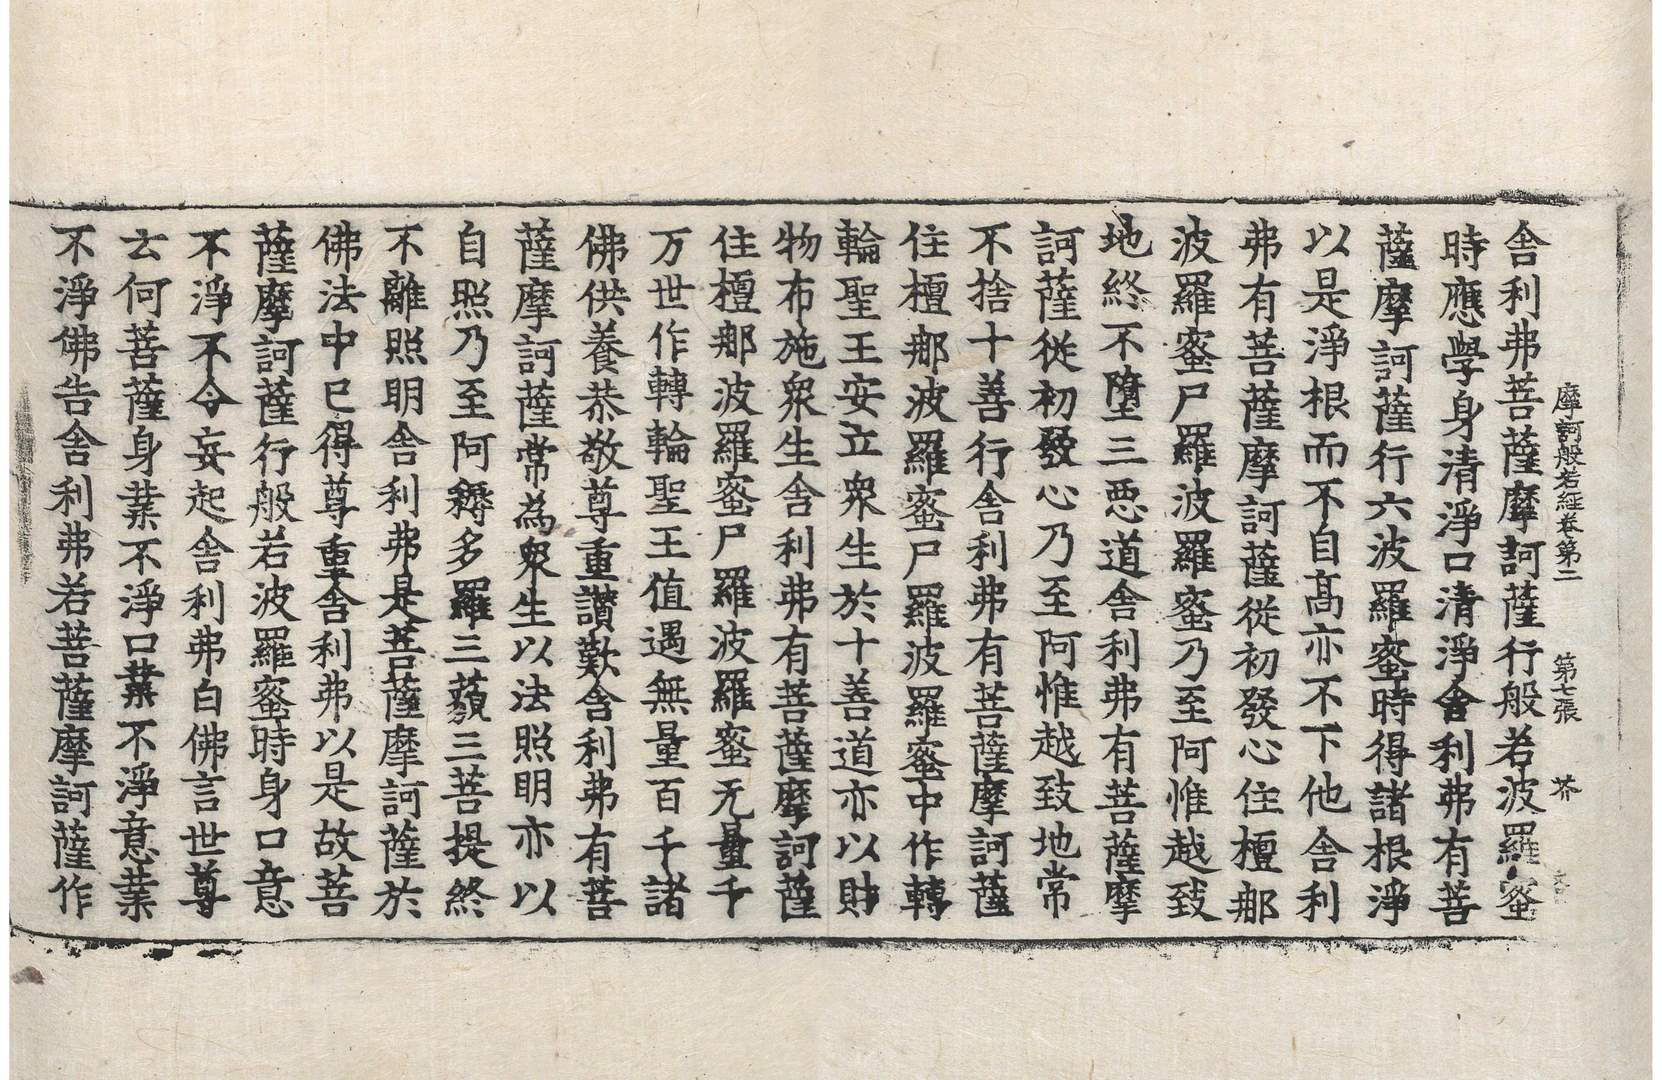 摩訶般若經卷第二 第七張 芥
舍利弗菩薩摩訶薩行般若波羅蜜
時應學身清淨口清淨舍利弗有菩
薩摩訶薩行六波羅蜜時得諸根淨
以是淨根而不自高亦不下他舍利
弗有菩薩摩訶薩從初發心住檀那
波羅蜜尸羅波羅蜜乃至阿惟越致
地終不墮三惡道舍利弗有菩薩摩
訶薩從初發心乃至阿惟越致地常
不捨十善行舍利弗有菩薩摩訶薩
住檀那波羅蜜尸羅波羅蜜中作轉
輪聖王安立眾生於十善道亦以財
物布施眾生舍利弗有菩薩摩訶薩
住檀那波羅蜜尸羅波羅蜜无量千
万世作轉輪聖王值遇無量百千諸
佛供養恭敬尊重讚歎舍利弗有菩
薩摩訶薩常為眾生以法照明亦以
自照乃至阿耨多羅三藐三菩提終
不離照明舍利弗是菩薩摩訶薩於
佛法中已得尊重舍利弗以是故菩
薩摩訶薩行般若波羅蜜時身口意
不淨不令妄起舍利弗白佛言世尊
云何菩薩身業不淨口業不淨意業
不淨佛告舍利弗若菩薩摩訶薩作